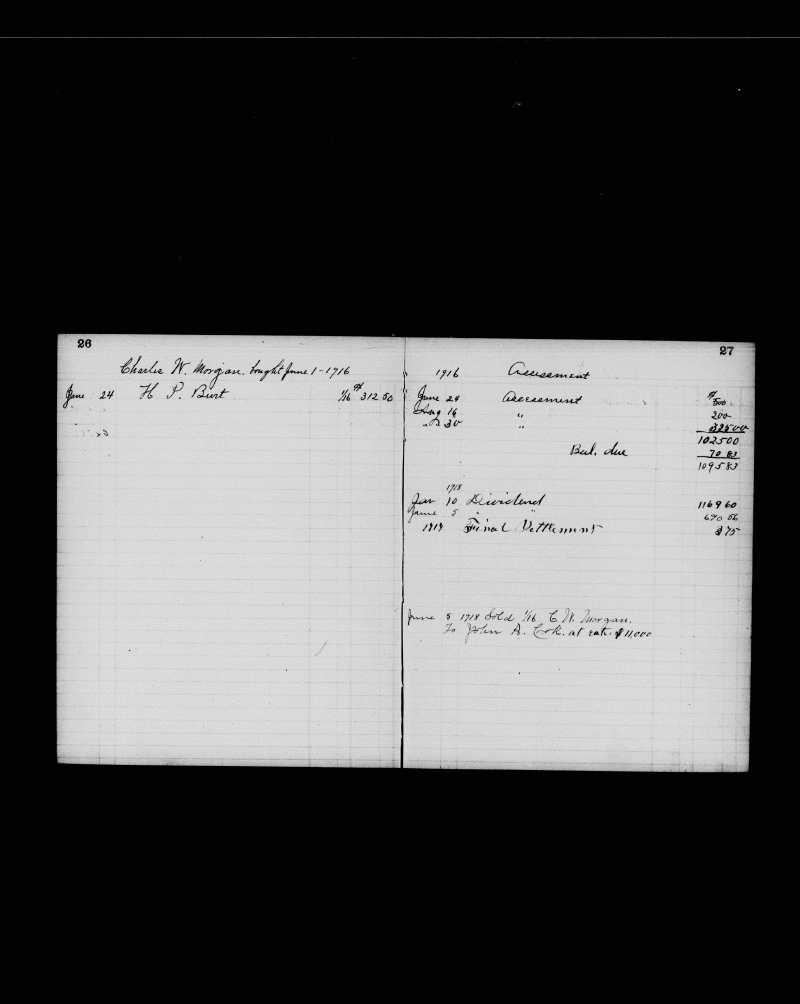 26
Charles W. Morgan. bought June 1-1916
June 24 H P. Burt 1/16 312 50
27
1916 Assessment
June 24 Assessment $ 500
Aug 16 " 200
" 30 " 325 00
1025 00
Bal. due 70 83
1095 83
1918
Jan 10 Dividend 1169 60
June 5 " "
1919 Final Settlement 8 75
June 5 1918 Sold 1/16 C. W. Morgan.
To John A. Cook. at rate $11,000